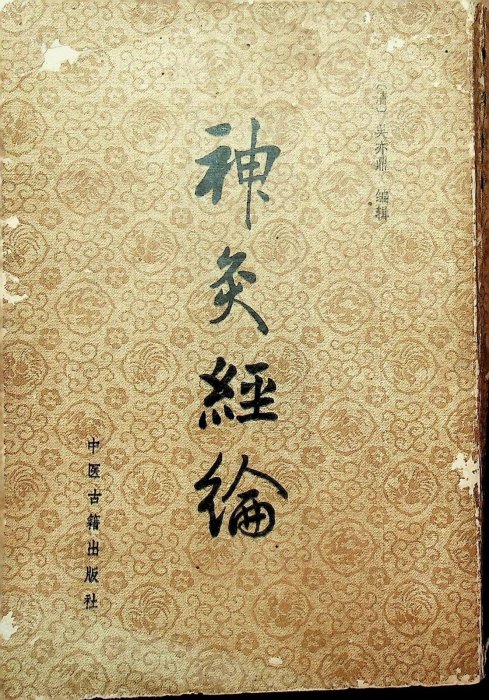 〔清〕吴亦鼎 编辑
神灸經綸
中医古籍出版社